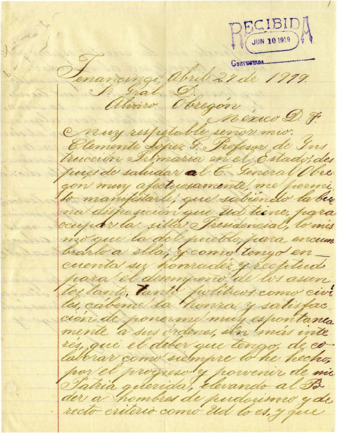 RECIBIDA
JUN 10 1919
Tenancingo, Abril 29 de 1919.
Sr. Gral. D.
Alvaro Obregón
México D. F.
Muy respetable señor mio:
Clemente López G. Profesor de Ins
trucción Primaria en el Estado, des
pués de saludar al C. General Obre
gón muy afectuosamente, me permi
to manifestarle, que sabiendo la bue
na disposición que Ud tiene, para
ocupar la silla Presidencial, lo mis
mo que la del pueblo para encum
brarlo a ella, y como tengo en
cuenta su honradez y rectitud
para el desempeño de los asun
tos tanto políticos como civi
les, cábeme la honra y satisfac
ción de ponerme muy espontanea
mente a sus órdenes sin más inte
rés, que el deber que tengo, de co
laborar como siempre lo he hecho,
por el progreso y porvenir de mi
Patria querida, elevando al Po
der a hombres de pundonor y de
recto criterio como Ud lo es, y que